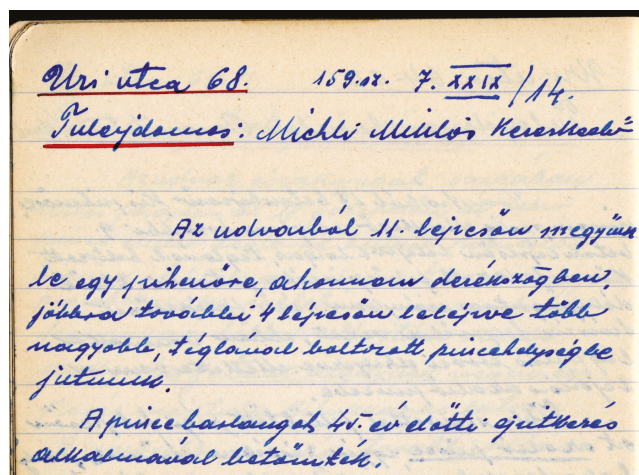 Uri utca 68. 159.sz. 7. XXIX/14.
Tulajdonos: Michli Miklós Kereskedő
Az udvarból 11. lépcsőn megyünk
le egy pihenőre, ahonnan derékszögben,
jobbra további 4 lépcsőn lelépve több
nagyobb, téglával boltozott pincehelységbe
jutunk.
A pince barlangot 45. év előtti épitkezés
alkalmával betömték.